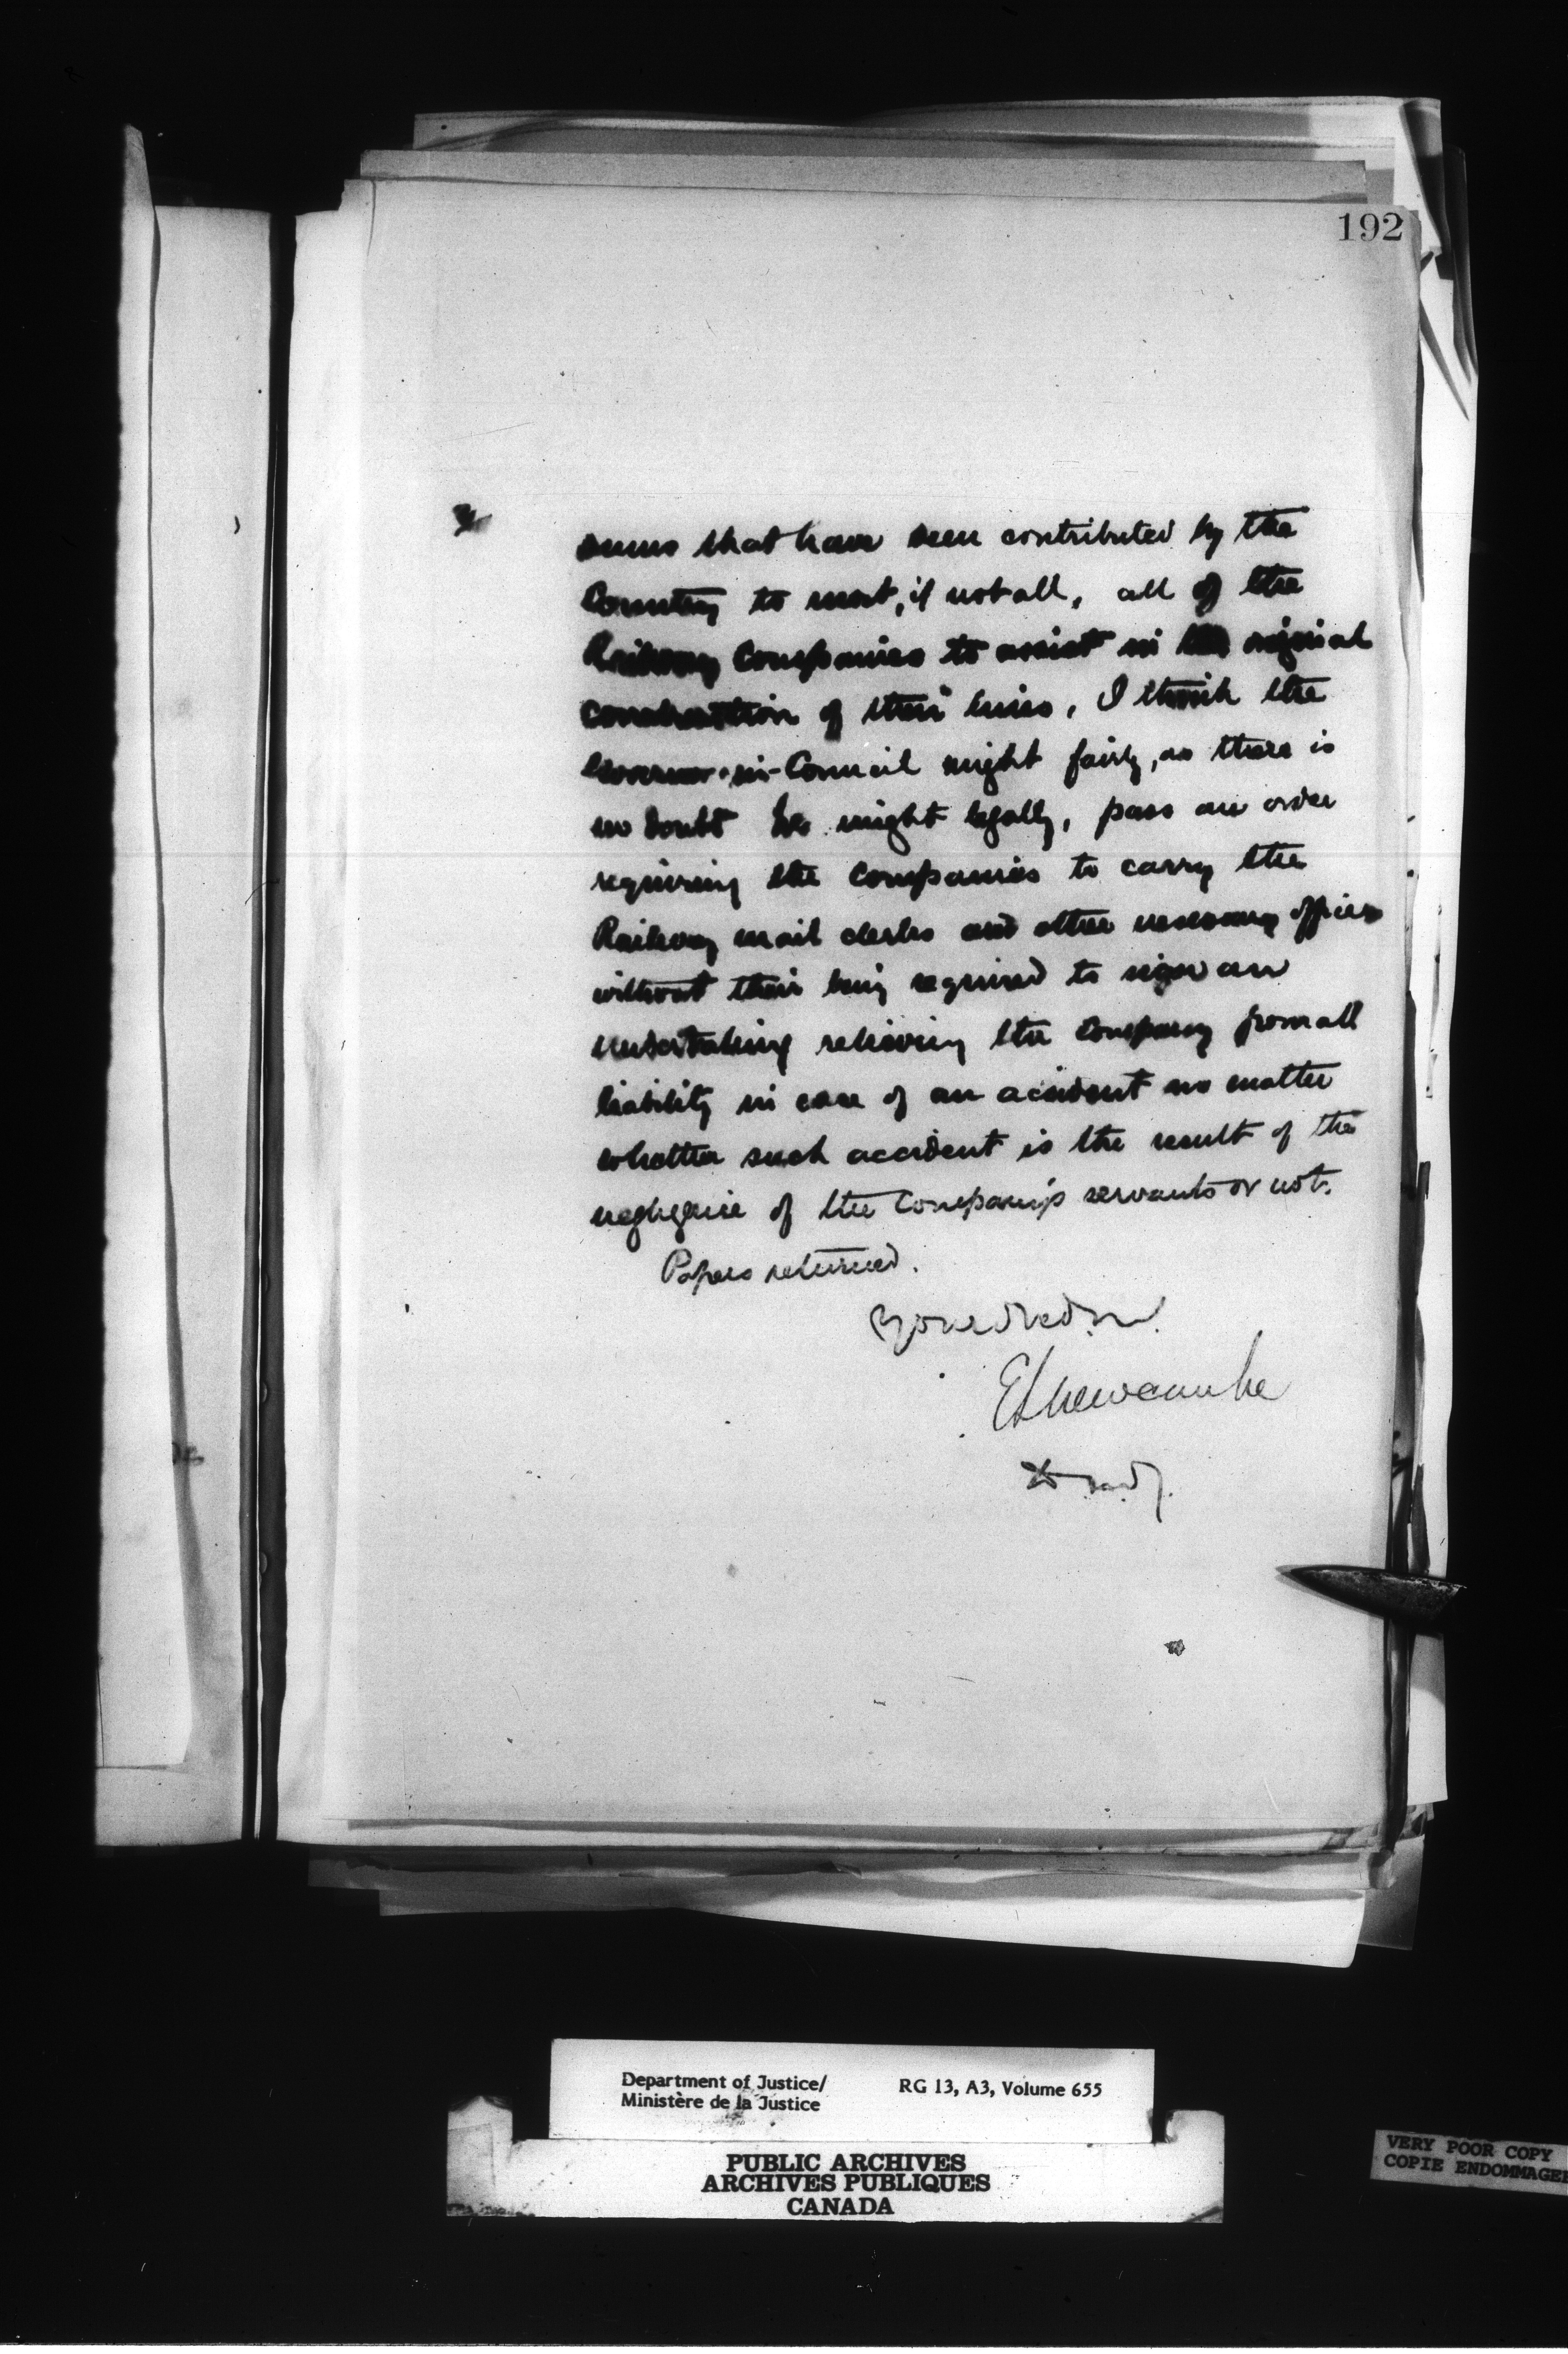 192
sums that have been contributed by the
Country to most, if not all, all of the
Railway Companies to assist in the original
construction of their lines, I think the
Governor-in-Council might fairly, as there is
no doubt he might legally, pass an order
requiring the Companies to carry the
Railway mail clerks and other necessary officers
without their being required to sign an
undertaking relieving the Company from all
liability in case of an accident no matter
whether such accident is the result of the
negligence of the Company's servants or not.
Papers returned.
E L Newcombe
Department of Justice/
Ministère de la Justice
RG 13, A3, Volume 655
PUBLIC ARCHIVES
ARCHIVES PUBLIQUES
CANADA
VERY POOR COPY
COPIE ENDOMMAGEE